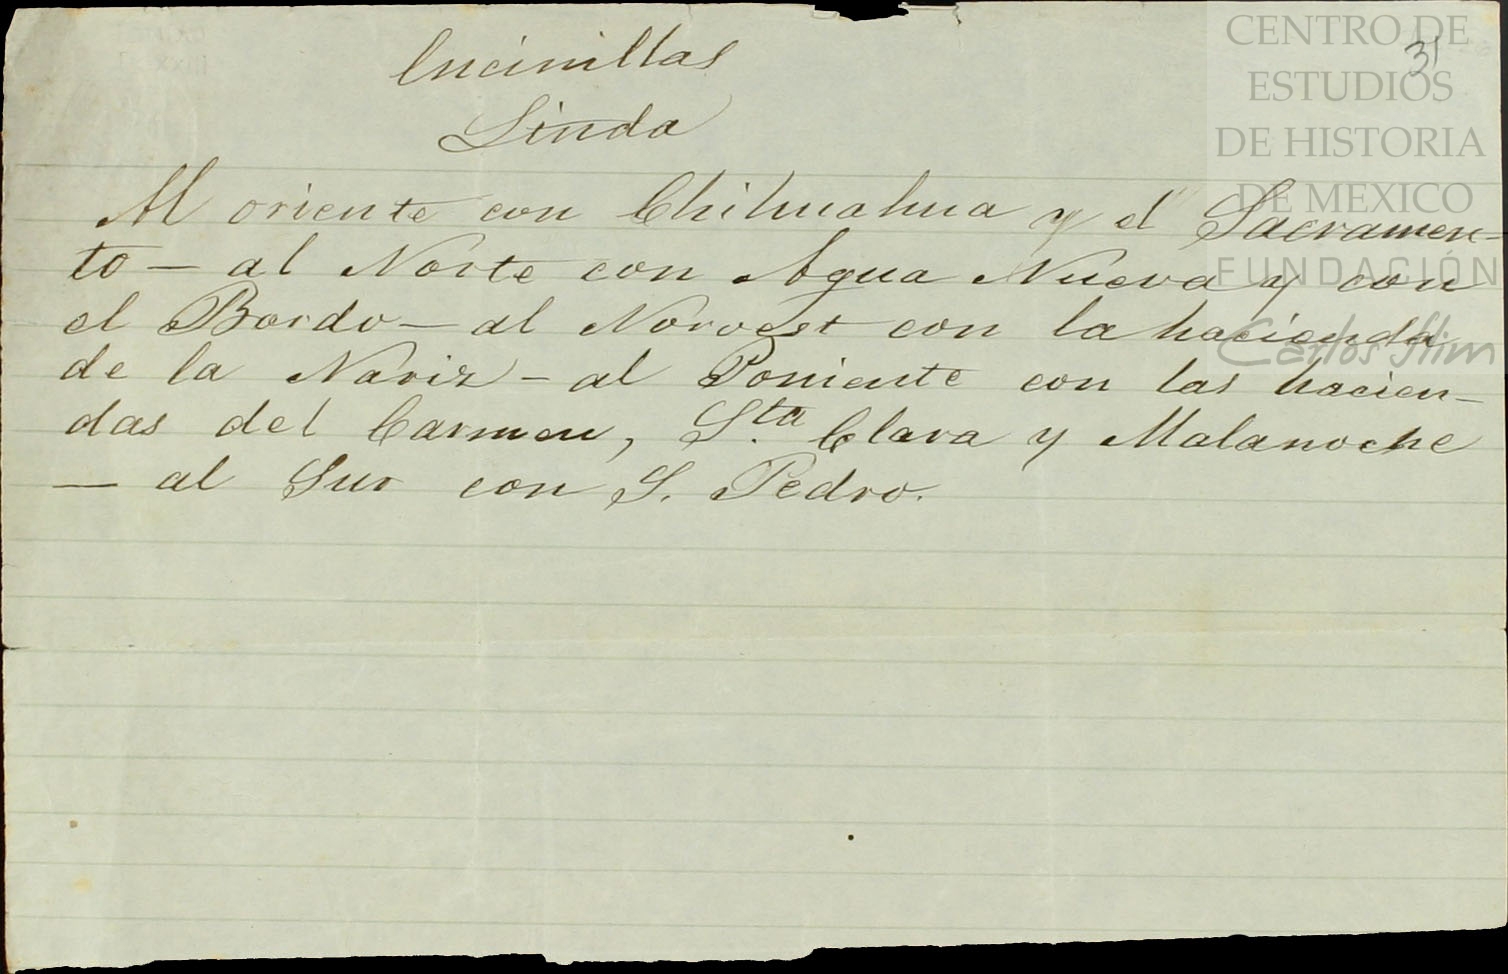 Encinillas
Linda
Al oriente con Chihuahua y el Sacramen=
to — al Norte con Agua Nueva y con
el Bordo — al Noroest con la hacienda
de la Nariz — al Poniente con las hacien-
das del Carmen, S.ta Clara y Malanoche
— al Sur con S. Pedro.
31
CENTRO DE
ESTUDIOS
DE HISTORIA
DE MEXICO
FUNDACIÓN
Carlos Slim